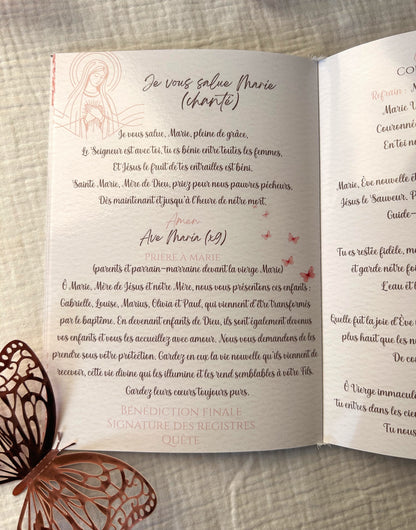 Je vous salue Marie
(chanté)
Je vous salue, Marie, pleine de grâce,
Le Seigneur est avec toi, tu es bénie entre toutes les femmes,
Et Jésus le fruit de tes entrailles est béni.
Sainte Marie, Mère de Dieu, priez pour nous pauvres pécheurs,
Dès maintenant et jusqu'à l'heure de notre mort.
Amen
Ave Maria (x9)
PRIÈRE À MARIE
(parents et parrain-marraine devant la vierge Marie)
Ô Marie, Mère de Jésus et notre Mère, nous vous présentons ces enfants :
Gabrielle, Louise, Marius, Eloïa et Paul, qui viennent d'être transformés
par le baptême. En devenant enfants de Dieu, ils sont également devenus
vos enfants et vous les accueillez avec amour. Nous vous demandons de les
prendre sous votre protection. Gardez en eux la vie nouvelle qu'ils viennent de
recevoir, cette vie divine qui les illumine et les rend semblables à votre Fils.
Gardez leurs cœurs toujours purs.
BÉNÉDICTION FINALE
SIGNATURE DES REGISTRES
QUÊTE
COU
Refrain :
Marie V
Couronnée
En toi no
Marie, Ève nouvelle et
Jésus le Sauveur, P
Guide-
Tu es restée fidèle, m
et garde notre foi
L'eau et l
Quelle fut la joie d'Ève
plus haut que les nu
De
Ô Vierge immaculée
tu entres dans les cie
Tu nous